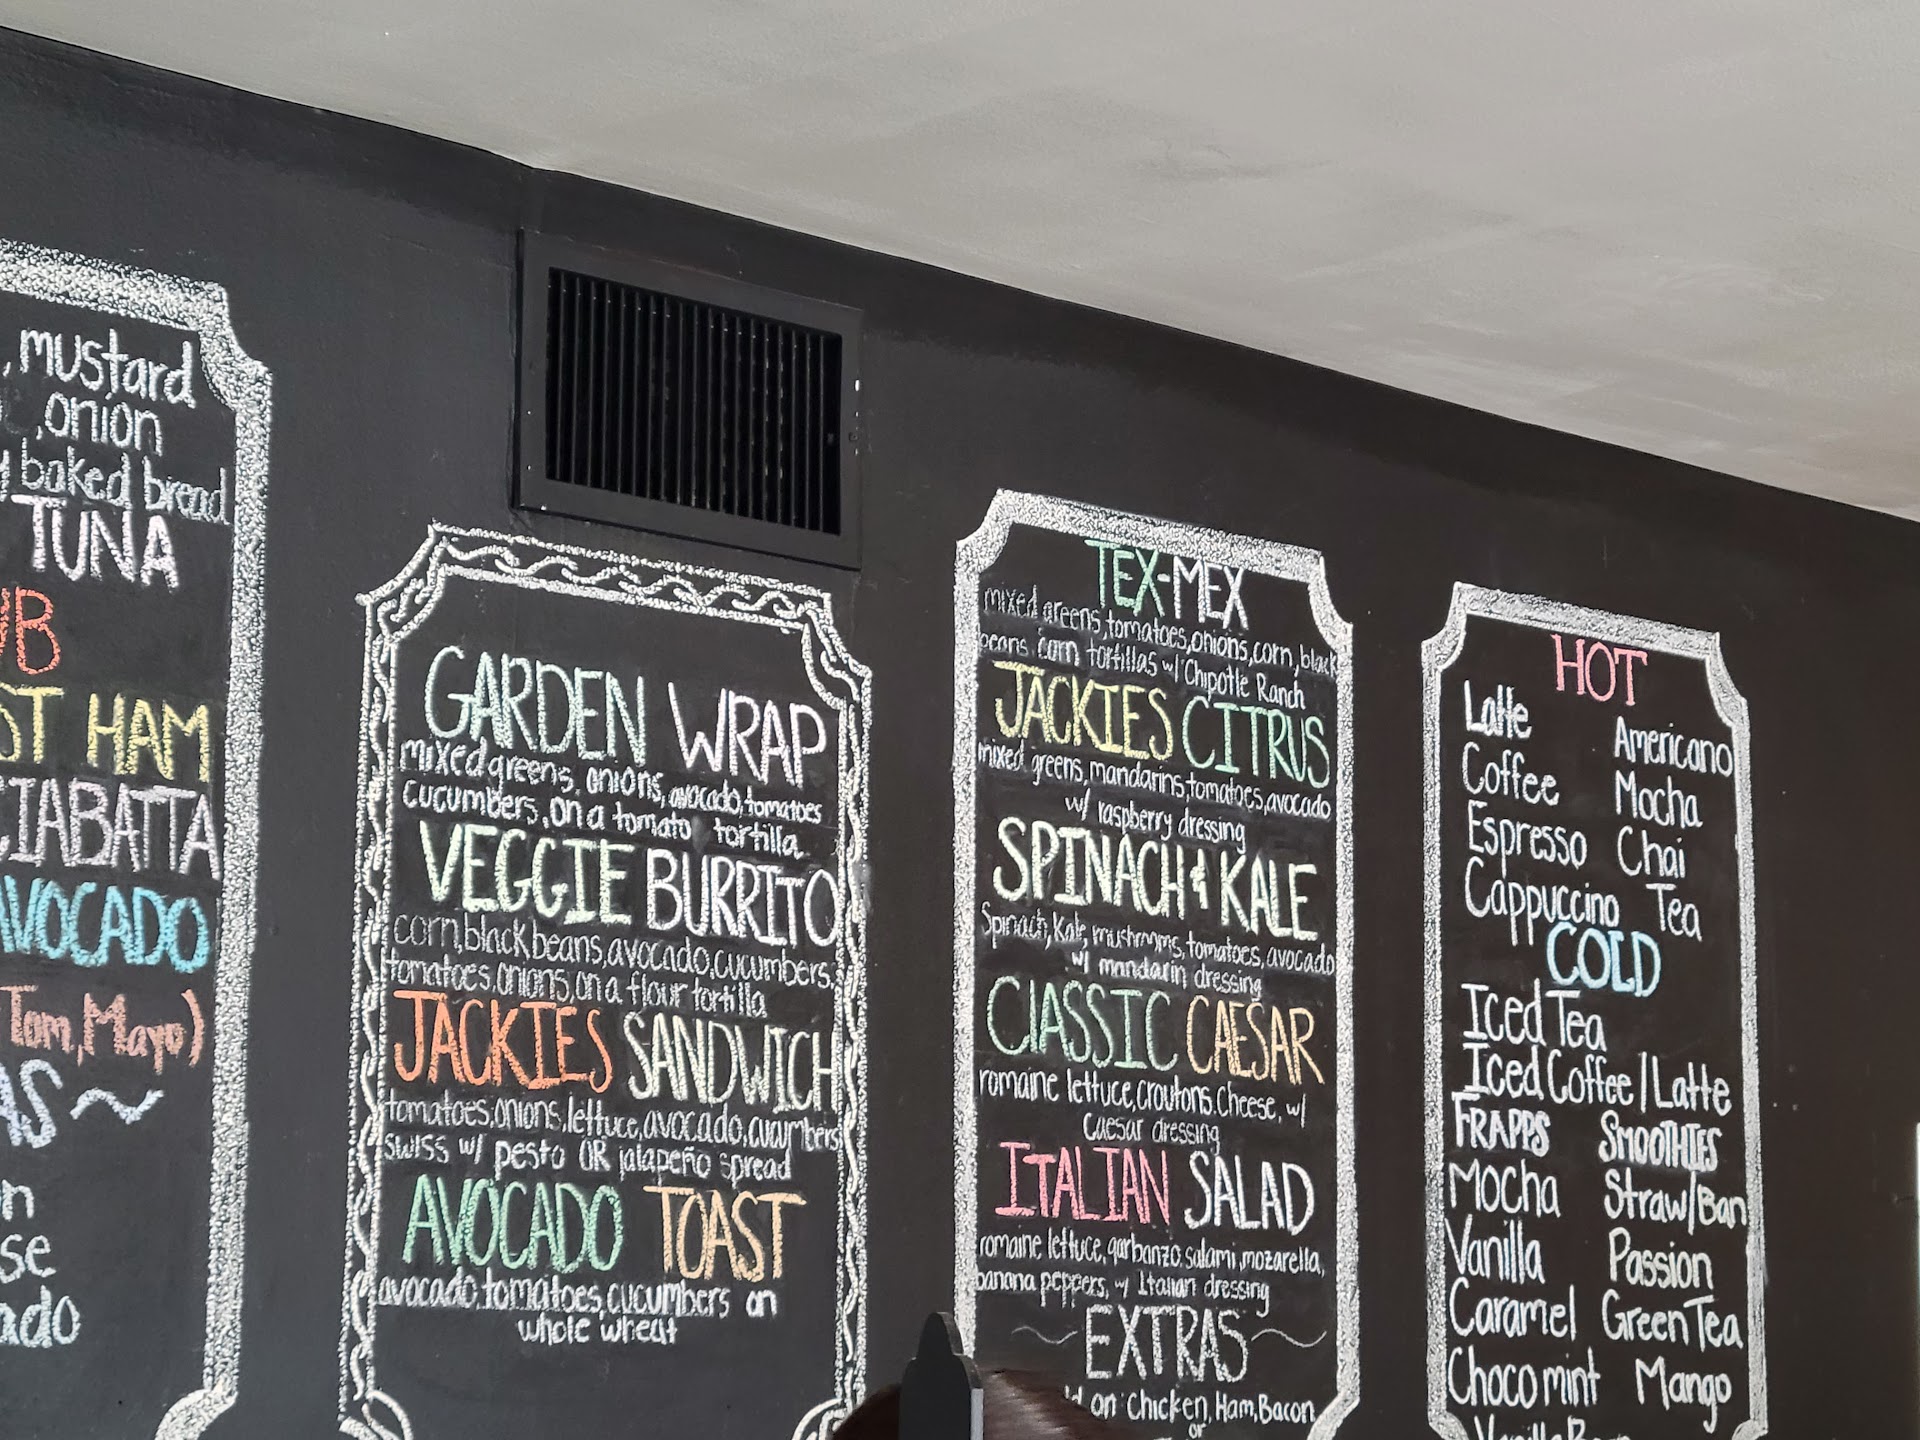 , mustard
, onion
baked bread
TUNA
ST HAM
CIABATTA
AVOCADO
Tom, Mayo)
AS ~
GARDEN WRAP
mixed greens, onions, avocado, tomatoes
cucumbers, on a tomato tortilla
VEGGIE BURRITO
corn, black beans, avocado, cucumbers,
tomatoes, onions, on a flour tortilla
JACKIES SANDWICH
tomatoes, onions, lettuce, avocado, cucumbers
swiss w/ pesto OR jalapeño spread
AVOCADO TOAST
avocado, tomatoes, cucumbers on
whole wheat
TEX-MEX
mixed greens, tomatoes, onions, corn, black
beans, corn tortillas w/ Chipotle Ranch
JACKIES CITRUS
mixed greens, mandarins, tomatoes, avocado
w/ raspberry dressing
SPINACH & KALE
Spinach, Kale, mushrooms, tomatoes, avocado
w/ mandarin dressing
CLASSIC CAESAR
romaine lettuce, croutons, cheese, w/
Caesar dressing
ITALIAN SALAD
romaine lettuce, garbanzo, salami, mozarella,
banana peppers, w/ Italian dressing
~ EXTRAS ~
on Chicken, Ham, Bacon
or
HOT
Latte Americano
Coffee Mocha
Espresso Chai
Cappuccino Tea
COLD
Iced Tea
Iced Coffee / Latte
FRAPPS SMOOTHIES
Mocha Straw/Ban
Vanilla Passion
Caramel Green Tea
Choco mint Mango